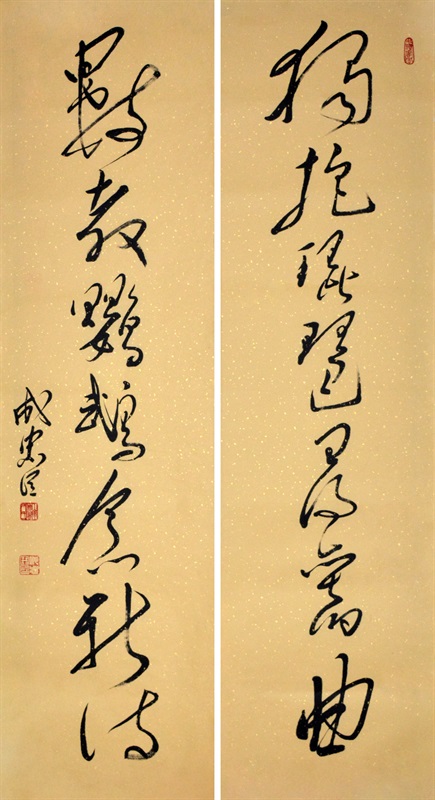 獨抱琵琶尋舊曲
數教鸚鵡念新詩
成忠臣